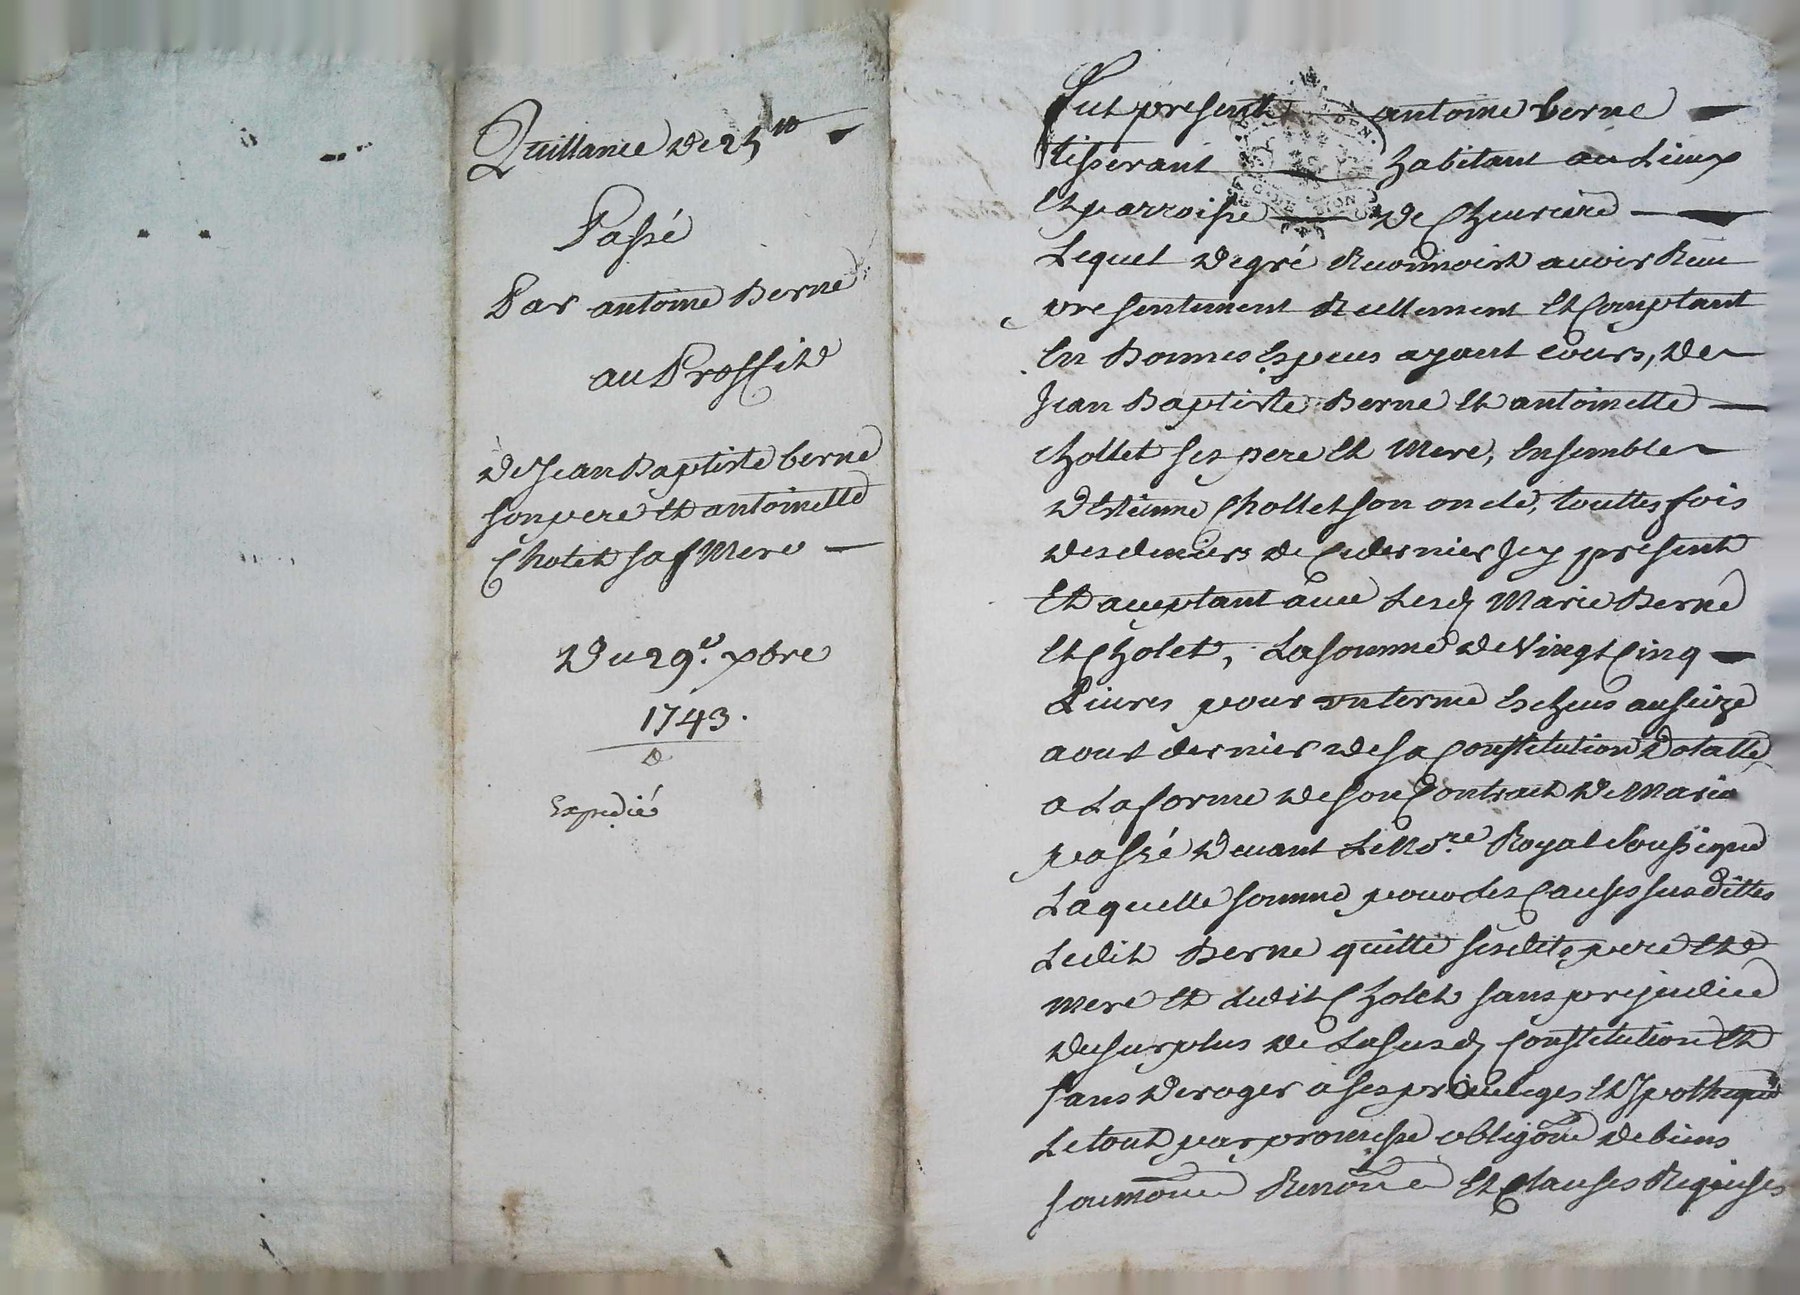 Quittance de 25ᵗᵗ
Passé
Par antoine Berne
au Proffit
de Jean Baptiste berne
son pere et antoinette
Chotet sa Mere
Du 29.ᵉ xbre
1743.
Expedié
Fut present antoine berne
tisserant habitant au Lieu
et parroisse de Cheuriere
Lequel degré Reconnoist auoir Reçu
presentement Reellement et Comptant
En Bonnes Especes ayant cours, de
Jean Baptiste Berne et antoinette
chollet ses pere et Mere, Ensemble
d'Etienne Chollet son oncle, touttes fois
des deniers de Ce dernier Jcy present
et acceptant auec Lesd Marie Berne
et Cholet, La somme de Vingt Cinq
Liures pour un terme Escheus au seize
aoust dernier de sa Constitution Dotalle
a La forme de son Contract de Maria
passé deuant Le No.ʳᵉ Royal soussigné
Laquelle somme pour les Causes susdittes
Ledit Berne quitte sesdits pere et
mere et ludit Cholet sans prejudice
du surplus de La susd Constitution et
sans deroger à ses priuileges et Jpotheques
Le tout par promesse obligõne de biens
soumõne Renõne et Clauses Requises